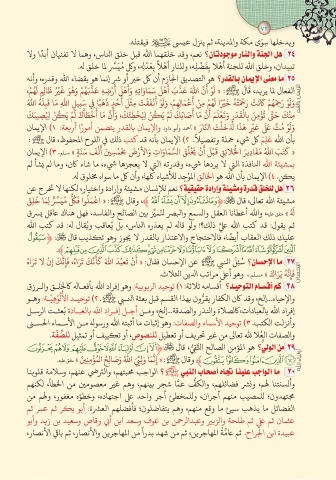 ٧٦
ويدخلها سوى مكة والمدينة، ثم ينزل عيسى ﷺ فيقتله.
٢٤ هل الجنة والنار موجودتان؟ نعم، وقد خلقهما الله قبل خلق الناس، وهما لا تفنيان أبداً ولا
تبيدان، وخلق الله للجنة أهلاً بفضله، وللنار أهلاً بعدله، وكل ميسر لما خلق له.
٢٥ ما معنى الإيمان بالقدر؟ هو التصديق الجازم أن كل خير أو شر إنما هو بقضاء الله وقدره، وأنه
الفعال لما يريد، قال ﷺ: «لو أن الله عذب أهل سماواته وأهل أرضه عذبهم وهو غير ظالم لهم،
ولو رحمهم كانت رحمته خيراً لهم من أعمالهم، ولو أنفقت مثل أحد ذهباً في سبيل الله ما قبله الله
منك حتى تؤمن بالقدر وتعلم أن ما أصابك لم يكن ليخطئك، وأن ما أخطأك لم يكن ليصيبك،
ولو مت على غير هذا لدخلت النار» أحمد وأبو داود والإيمان بالقدر يتضمن أموراً أربعة: ١) الإيمان
بأن الله علم كل شيء جملة وتفصيلاً. ٢) الإيمان بأنه قد كتب ذلك في اللوح المحفوظ، قال ﷺ:
«كتب الله مقادير الخلائق قبل أن يخلق السماوات والأرض بخمسين ألف سنة» مسلم. ٣) الإيمان
بمشيئة الله النافذة التي لا يردها شيء، وقدرته التي لا يعجزها شيء، ما شاء كان، وما لم يشأ لم
يكن. ٤) الإيمان بأن الله هو الخالق الموجد للأشياء كلها، وأن كل ما سواه مخلوق له.
٢٦ هل للخلق قدرة ومشيئة وإرادة حقيقية؟ نعم للإنسان مشيئة وإرادة واختيار، لكنها لا تخرج عن
مشيئة الله تعالى، قال ﷻ: ﴿وما تشاءون إلا أن يشاء الله﴾، وقال ﷺ: «اعملوا فكل ميسر لما خلق
له» متفق عليه، والله أعطانا العقل والسمع والبصر لنميز بين الصالح والفاسد، فهل هناك عاقل يسرق
ثم يقول: قد كتب الله علي ذلك؟! ولو قاله لم يعذره الناس، بل يعاقب ويقال له: قد كتب الله
عليك ذلك العقاب أيضاً، فالاحتجاج والاعتذار بالقدر لا يجوز وهو كذب، قال ﷻ: ﴿سيقول
الذين أشركوا لو شاء الله ما أشركنا ولا آباؤنا ولا حرمنا من شيء كذلك كذب الذين من قبلهم﴾
٢٧ ما الإحسان؟ سئل النبي ﷺ عن الإحسان فقال: «أن تعبد الله كأنك تراه، فإنك إن لا تراه
فإنه يراك» مسلم، وهو أعلى مراتب الدين الثلاثة.
٢٨ كم أقسام التوحيد؟ أقسامه ثلاثة: ١) توحيد الربوبية: وهو إفراد الله بأفعاله كالخلق والرزق
والإحياء..إلخ، وقد كان الكفار يقرون بهذا القسم قبل بعثة النبي ﷺ. ٢) توحيد الألوهية: وهو
إفراد الله بالعبادات؛ كالصلاة والنذر والصدقة..إلخ، ومن أجل إفراد الله بالعبادة بعثت الرسل
وأنزلت الكتب. ٣) توحيد الأسماء والصفات: وهو إثبات ما أثبته الله ورسوله من الأسماء الحسنى
والصفات العلا لله تعالى من غير تحريف أو تعطيل للنصوص، أو تكييف أو تمثيل للصفة.
٢٩ من الولي؟ هو المؤمن الصالح التقي؛ قال ﷻ: ﴿ألا إن أولياء الله لا خوف عليهم ولا هم يحزنون
الذين آمنوا وكانوا يتقون﴾ وقال ﷺ: «إنما وليي الله وصالح المؤمنين» متفق عليه.
٣٠ ما الواجب علينا تجاه أصحاب النبي ﷺ؟ الواجب محبتهم، والترضي عنهم، وسلامة قلوبنا
وألسنتنا لهم، ونشر فضائلهم، والكف عما شجر بينهم، وهم غير معصومين من الخطأ، لكنهم
مجتهدون؛ للمصيب منهم أجران، وللمخطئ أجر واحد على اجتهاده، وخطؤه مغفور، ولهم من
الفضائل ما يذهب سيئ ما وقع منهم، وهم يتفاضلون؛ فأفضلهم العشرة: أبو بكر ثم عمر ثم
عثمان ثم علي ثم طلحة والزبير وعبدالرحمن بن عوف وسعد ابن أبي وقاص وسعيد بن زيد وأبو
عبيدة ابن الجراح، ثم عامة المهاجرين، ثم من شهد بدراً من المهاجرين والأنصار، ثم باقي الأنصار،